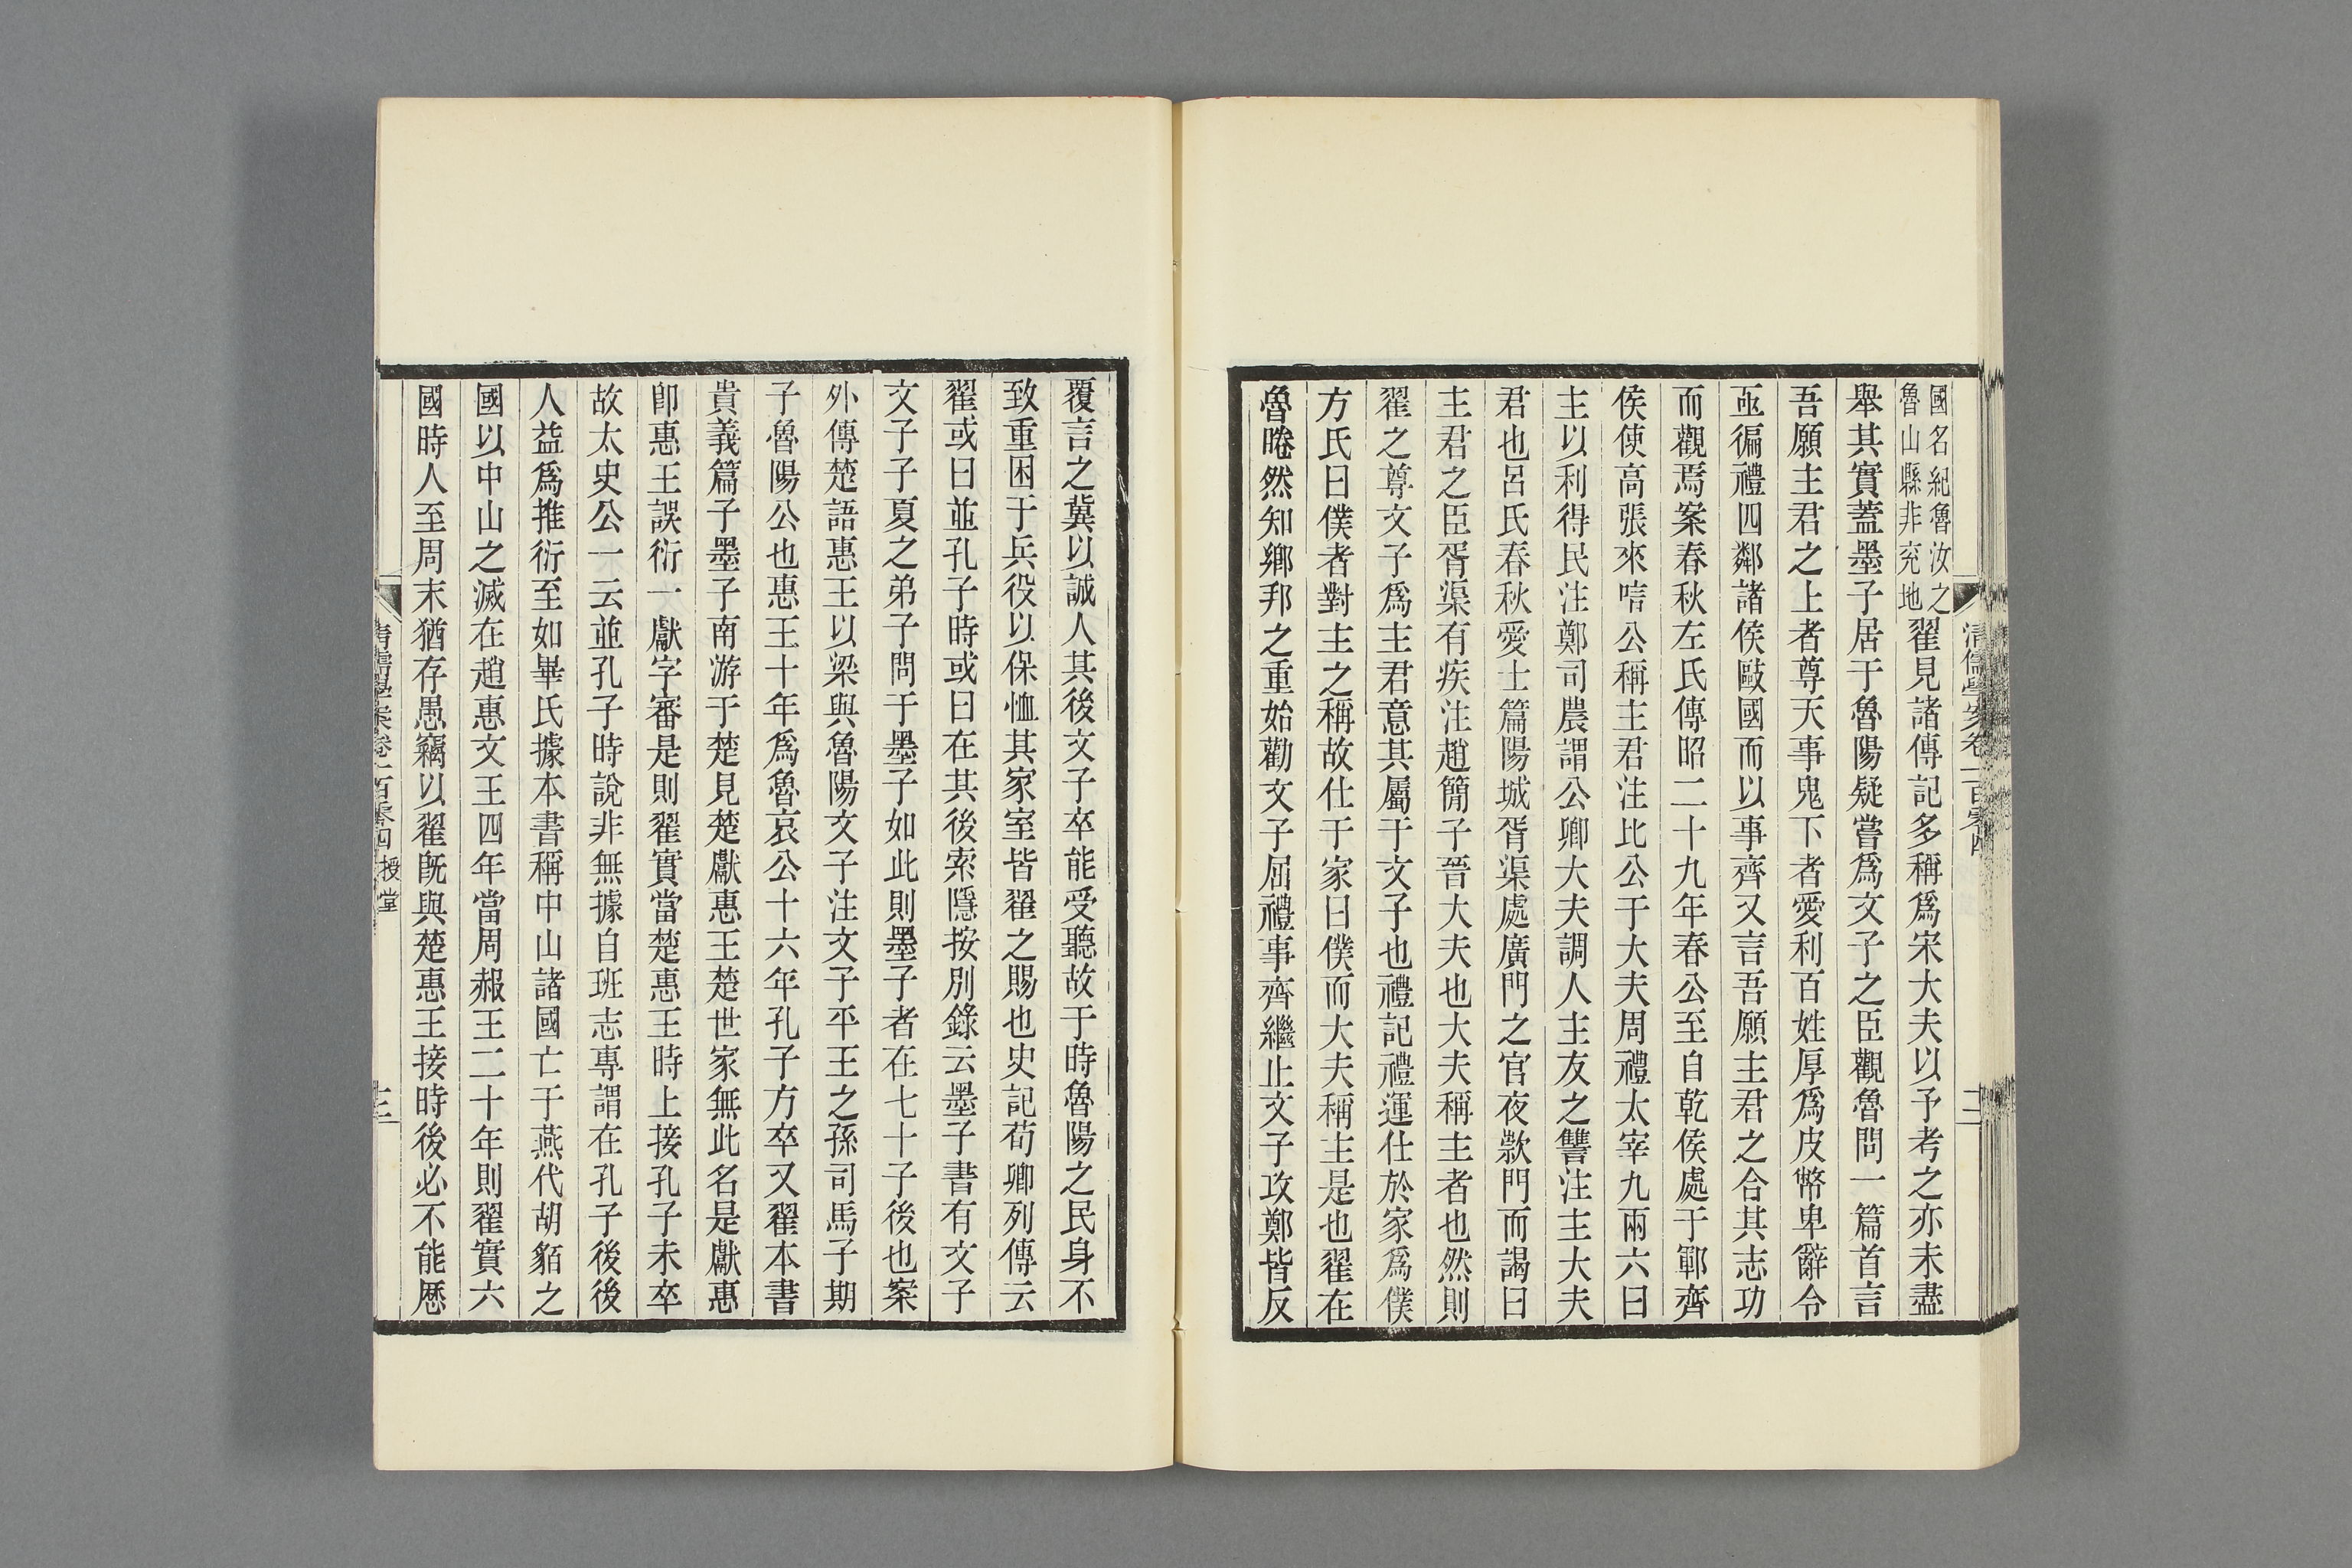 清儒學案卷一百零四
二
國名紀魯汝之
魯山縣非兖地
翟見諸傳記多稱爲宋大夫以予考之亦未盡
舉其實蓋墨子居于魯陽疑嘗爲文子之臣觀魯問一篇首言
吾願主君之上者尊天事鬼下者愛利百姓厚爲皮幣卑辭令
亟徧禮四鄰諸侯敺國而以事齊又言吾願主君之合其志功
而觀焉案春秋左氏傳昭二十九年春公至自乾侯處于鄆齊
侯使高張來唁公稱主君注比公于大夫周禮太宰九兩六曰
主以利得民注鄭司農謂公卿大夫調人主友之讐注主大夫
君也呂氏春秋愛士篇陽城胥渠處廣門之官夜款門而謁曰
主君之臣胥渠有疾注趙簡子晉大夫也大夫稱主者也然則
翟之尊文子爲主君意其屬于文子也禮記禮運仕於家爲僕
方氏曰僕者對主之稱故仕于家曰僕而大夫稱主是也翟在
魯睠然知鄉邦之重始勸文子屈禮事齊繼止文子攻鄭皆反
覆言之冀以誠人其後文子卒能受聽故于時魯陽之民身不
致重困于兵役以保恤其家室皆翟之賜也史記荀卿列傳云
翟或曰並孔子時或曰在其後索隱按別錄云墨子書有文子
文子子夏之弟子問于墨子如此則墨子者在七十子後也案
外傳楚語惠王以梁與魯陽文子注文子平王之孫司馬子期
子魯陽公也惠王十年爲魯哀公十六年孔子方卒又翟本書
貴義篇子墨子南游于楚見楚獻惠王楚世家無此名是獻惠
卽惠王誤衍一獻字審是則翟實當楚惠王時上接孔子未卒
故太史公一云並孔子時說非無據自班志專謂在孔子後後
人益爲推衍至如畢氏據本書稱中山諸國亡于燕代胡貊之
國以中山之滅在趙惠文王四年當周赧王二十年則翟實六
國時人至周末猶存愚竊以翟旣與楚惠王接時後必不能歷
清儒學案卷一百零四
授堂
三